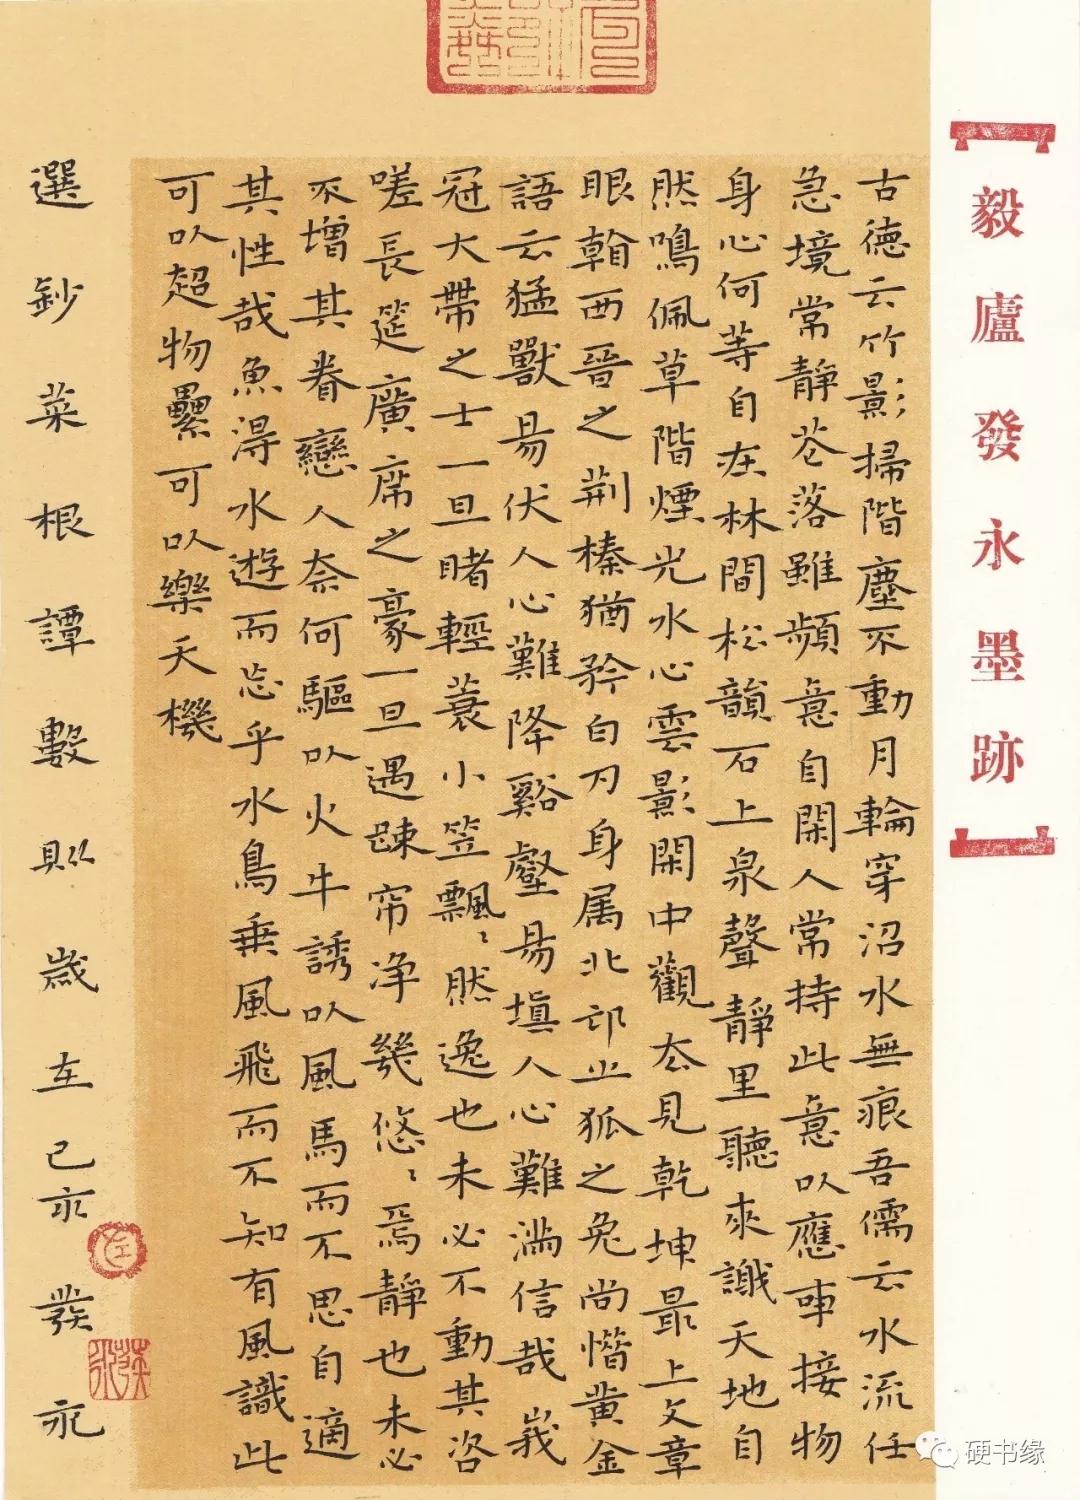 毅廬發永墨跡
古德云竹影掃階塵不動月輪穿沼水無痕吾儒云水流任
急境常靜花落雖頻意自閑人常持此意以應事接物
身心何等自在林間松韻石上泉聲靜里聽來識天地自
然鳴佩草階煙光水心雲影閑中觀去見乾坤最上文章
眼看西晉之荆榛猶矜白刃身属北邙㞢狐之兔尚惜黄金
語云猛獸易伏人心難降谿壑易填人心難滿信哉峩
冠大帶之士一旦睹輕蓑小笠飄〻然逸也未必不動其咨
嗟長筵廣席之豪一旦遇疎帘净幾悠〻焉靜也未必
不增其眷戀人奈何驅以火牛誘以風馬而不思自適
其性哉魚得水遊而忘乎水鳥乗風飛而不知有風識此
可以超物纍可以樂天機
選鈔菜根譚數則歲在己亥發永
硬书缘